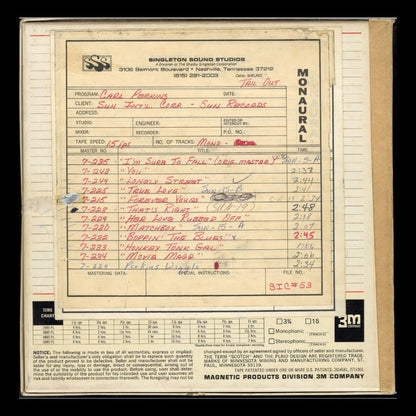 SSS
SINGLETON SOUND STUDIOS
A Division of The Shelby Singleton Corporation
3106 Belmont Boulevard • Nashville, Tennessee 37212
(615) 291-2003
TAIL OUT
MONAURAL
PROGRAM: CARL PERKINS DATE:
CLIENT: SUN INT'L CORP - SUN RECORDS
ADDRESS:
STUDIO: ENGINEER:
MIXER: RECORDER: P.O. NO.:
TAPE SPEED: 15 ips NO. OF TRACKS: MONO -
MASTER NO. TITLE TIME:
7-235 "I'M SURE TO FALL" (ORIG. MASTER)
7-243 "YOU" 2:33
7-244 LONELY STREET 2:44
7-225 "TRUE LOVE" SUN-15-B 2:41
7-215 "FOREVER YOURS"
7-228 "THAT'S RIGHT" 2:48
7-229 "HER LOVE RUBBED OFF" 2:18
7-230 "MATCHBOX" SUN-15-A 2:07
7-232 "BOPPIN' THE BLUES" 2:45
7-233 "HONKEY TONK GAL"
7-234 "MOVIE MAGG" 2:06
PERKINS WIGGLE 2:34
MASTERING DATA: SPECIAL INSTRUCTIONS: FILE NO.:
SIC#53
TIME CHART
3¾ 15
Monophonic
Stereophonic
3M COMPANY
NOTICE: The following is made in lieu of all warranties, express or implied:
Seller's and manufacturer's only obligation shall be to replace such quantity
of the product proved to be defective. Neither seller nor manufacturer shall
be liable for any injury, loss or damage, direct or consequential, arising out of
the use of or the inability to use the product. Before using, user shall deter-
mine the suitability of the product for his intended use and user assumes all
risk and liability whatsoever in connection therewith. The foregoing may not be
changed except by an agreement signed by officers of seller and manufacturer.
THE TERM "SCOTCH" AND THE PLAID DESIGN ARE REGISTERED TRADE-
MARKS OF MINNESOTA MINING AND MANUFACTURING COMPANY, ST.
PAUL, MINNESOTA 55119.
MAGNETIC PRODUCTS DIVISION 3M COMPANY